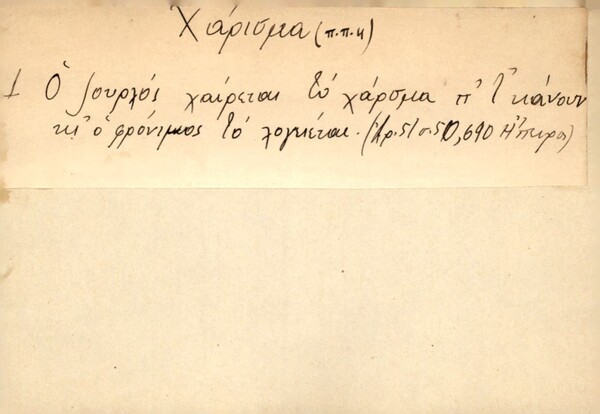 Χάρισμα (π.π.η)
1 Ὁ ζουρλός χαίρεται τό χάρσμα π' τ' κάνουν
κι' ὁ φρόνιμος τό λογιέται. (Ἀρ.51 σ.50,690 Ἤπειρος)